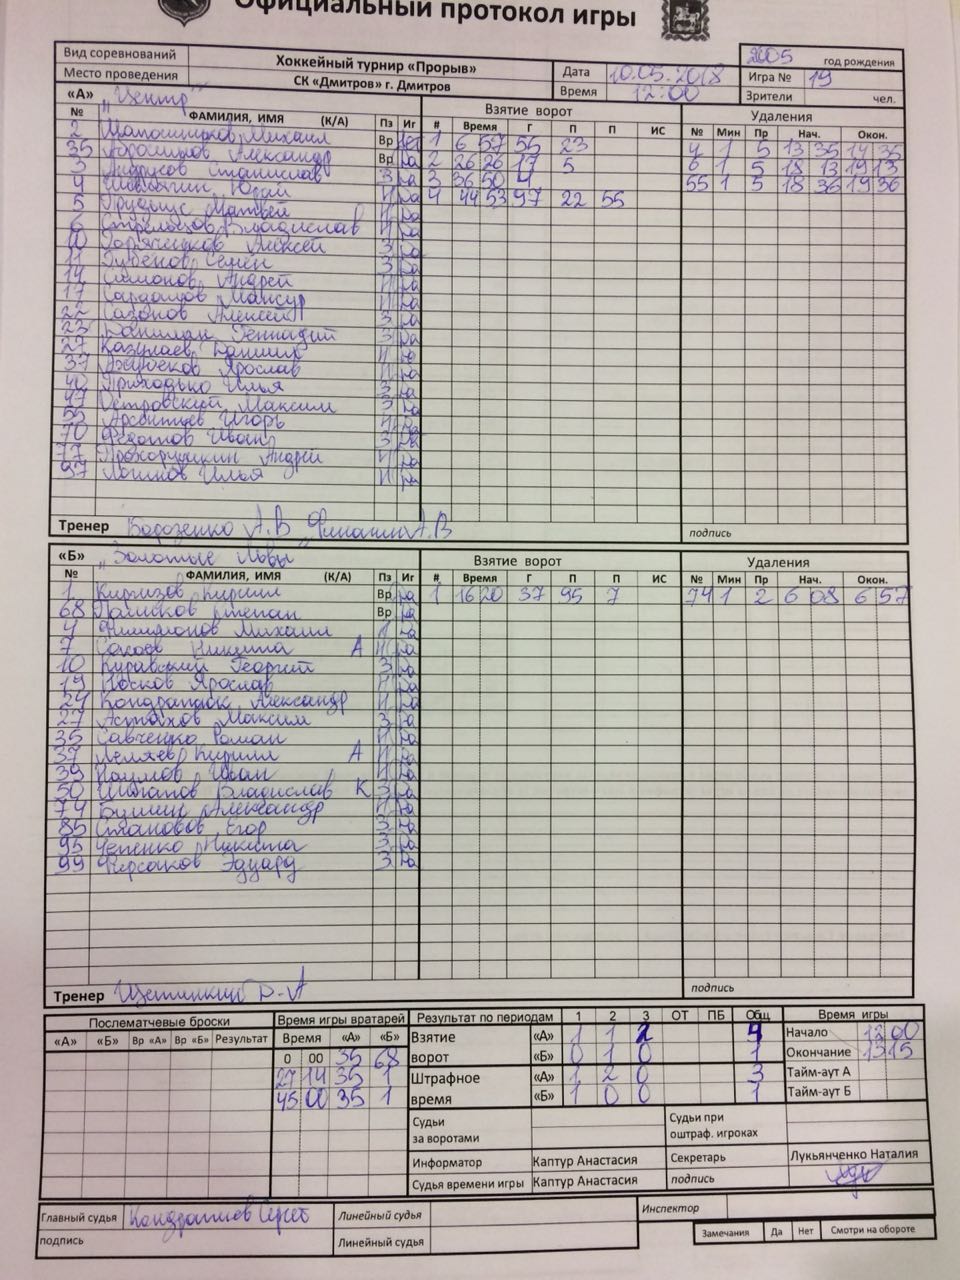 Официальный протокол игры
Вид соревнований Хоккейный турнир «Прорыв» 2005 год рождения
Место проведения СК «Дмитров» г. Дмитров Дата 10.05.2018 Игра № 19
Время 12:00 Зрители чел.
«А» "Центр" Взятие ворот Удаления
№ ФАМИЛИЯ, ИМЯ (К/А) Пз Иг # Время Г П П ИС № Мин Пр Нач. Окон.
2 Михаил Вр Нет 1 6 57 55 23 4 1 5 13 35 14 35
35 Александр Вр Да 2 26 26 17 5 6 1 5 18 13 19 13
3 Станислав З Да 3 36 50 4 55 1 5 18 36 19 36
4 Юрий Н Да 4 44 53 97 22 55
5 Матвей Н Да
6 Стрельцов Владислав Н Да
10 Горяченков Алексей З Да
11 Губенов Семен З Да
14 Симонов Андрей Н Да
17 Мансур Н Да
22 Сазонов Алексей З Да
23 Геннадий З Да
27 Даниил Н Да
37 Ярослав Н Да
40 Приходько Илья З Да
47 Петровский Максим З Да
55 Арсентьев Игорь Н Да
70 Федотов Иван З Да
77 Андрей Н Да
97 Логинов Илья Н Да
Тренер А.В А.В подпись
«Б» "Золотые Львы" Взятие ворот Удаления
№ ФАМИЛИЯ, ИМЯ (К/А) Пз Иг # Время Г П П ИС № Мин Пр Нач. Окон.
1 Киргизов Кирилл Вр Да 1 16 20 37 95 7 74 1 2 6 08 6 57
68 Степан Вр Да
4 Филимонов Михаил Да
7 Никита А Н Да
10 Куравский Георгий З Да
19 Носков Ярослав Н Да
24 Кондратюк Александр Н Да
27 Астахов Максим З Да
35 Савченко Роман Н Да
37 Кирилл А Н Да
39 Наумов Иван Н Да
50 Владислав К З Да
74 Бушин Александр Н Да
85 Егор З Да
95 Чепенко Никита З Да
99 Фирсаков Эдуард З Да
Тренер Щетинкин Д.А подпись
Послематчевые броски Время игры вратарей Результат по периодам 1 2 3 ОТ ПБ Общ Время игры
«А» «Б» Вр «А» Вр «Б» Результат Время «А» «Б» Взятие «А» 1 1 2 4 Начало 12 00
0 00 35 68 ворот «Б» 0 1 0 1 Окончание 13 15
27 14 35 1 Штрафное «А» 1 2 0 3 Тайм-аут А
45 00 35 1 время «Б» 1 0 0 1 Тайм-аут Б
Судьи за воротами Судьи при оштраф. игроках
Информатор Каптур Анастасия Секретарь Лукьянченко Наталия
Судья времени игры Каптур Анастасия подпись
Главный судья Линейный судья Инспектор
подпись Линейный судья Замечания Да Нет Смотри на обороте